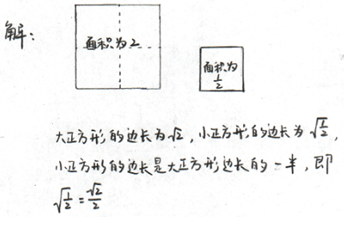 解：
面积为2
面积为
1/2
大正方形的边长为√2，小正方形的边长为√(1/2)，
小正方形的边长是大正方形边长的一半，即
√(1/2)=√2/2